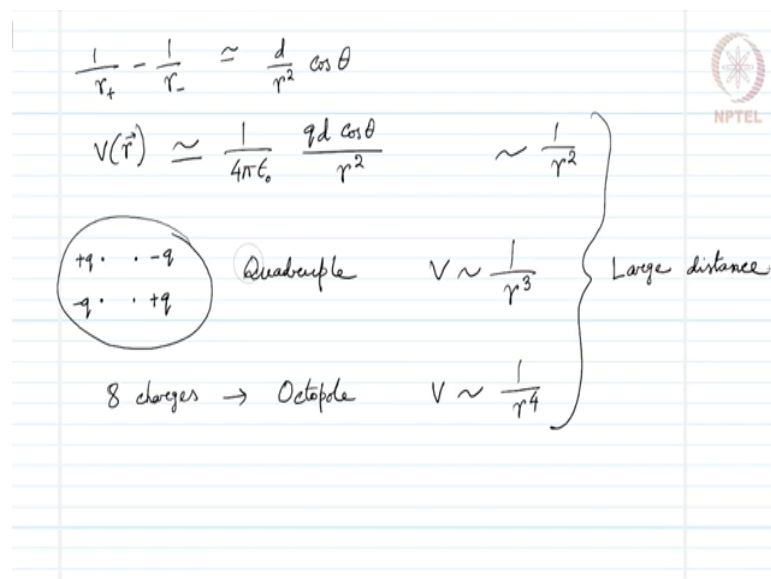 1/r₊ - 1/r₋ ≃ d/r² cos θ
NPTEL
V(r⃗) ≃ 1/4πε₀ qd cosθ/r² ~ 1/r²
+q · · -q
-q · · +q
Quadruple V ~ 1/r³
Large distance
8 charges → Octopole V ~ 1/r⁴